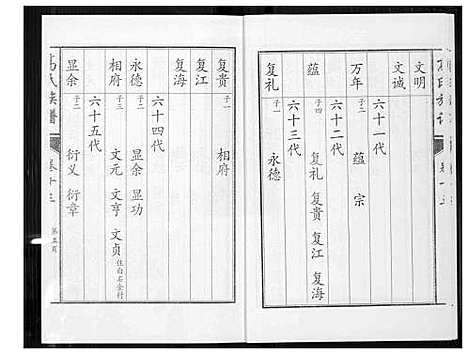 文明
文诚
六十一代
万年 子二 蕴 宗
六十二代
蕴 子四 复礼 复贵 复江 复海
六十三代
复礼 子一 永德
复贵 子一 相府
复江
复海
六十四代
永德 子二 显余 显功
相府 子三 文元 文亨 文贞 住白石金行
六十五代
显余 子二 衍义 衍章
高氏族谱
卷十三
第五页